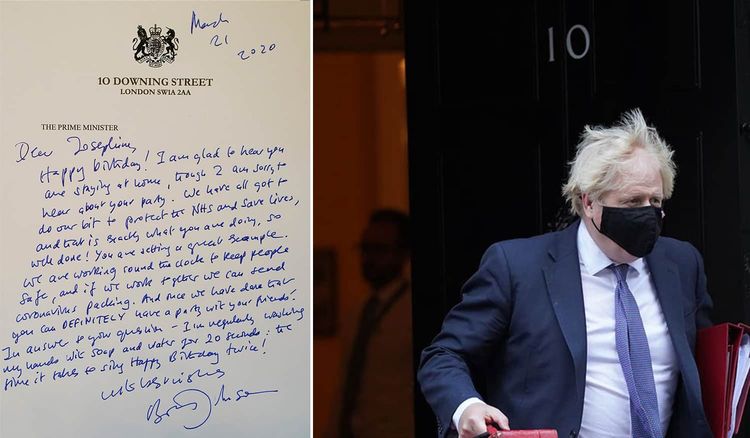 March
21
2020
10 DOWNING STREET
LONDON SW1A 2AA
THE PRIME MINISTER
Dear Josephine,
Happy birthday! I am glad to hear you
are staying at home, though I am sorry to
hear about your party. We have all got to
do our bit to protect the NHS and save lives,
and that is exactly what you are doing, so
well done! You are setting a great example.
We are working round the clock to keep people
safe, and if we work together we can send
coronavirus packing. And once we have done that
you can DEFINITELY have a party with your friends!
In answer to your question - I'm regularly washing
my hands with soap and water for 20 seconds: the
time it takes to sing Happy Birthday twice!
with best wishes
Boris Johnson
10